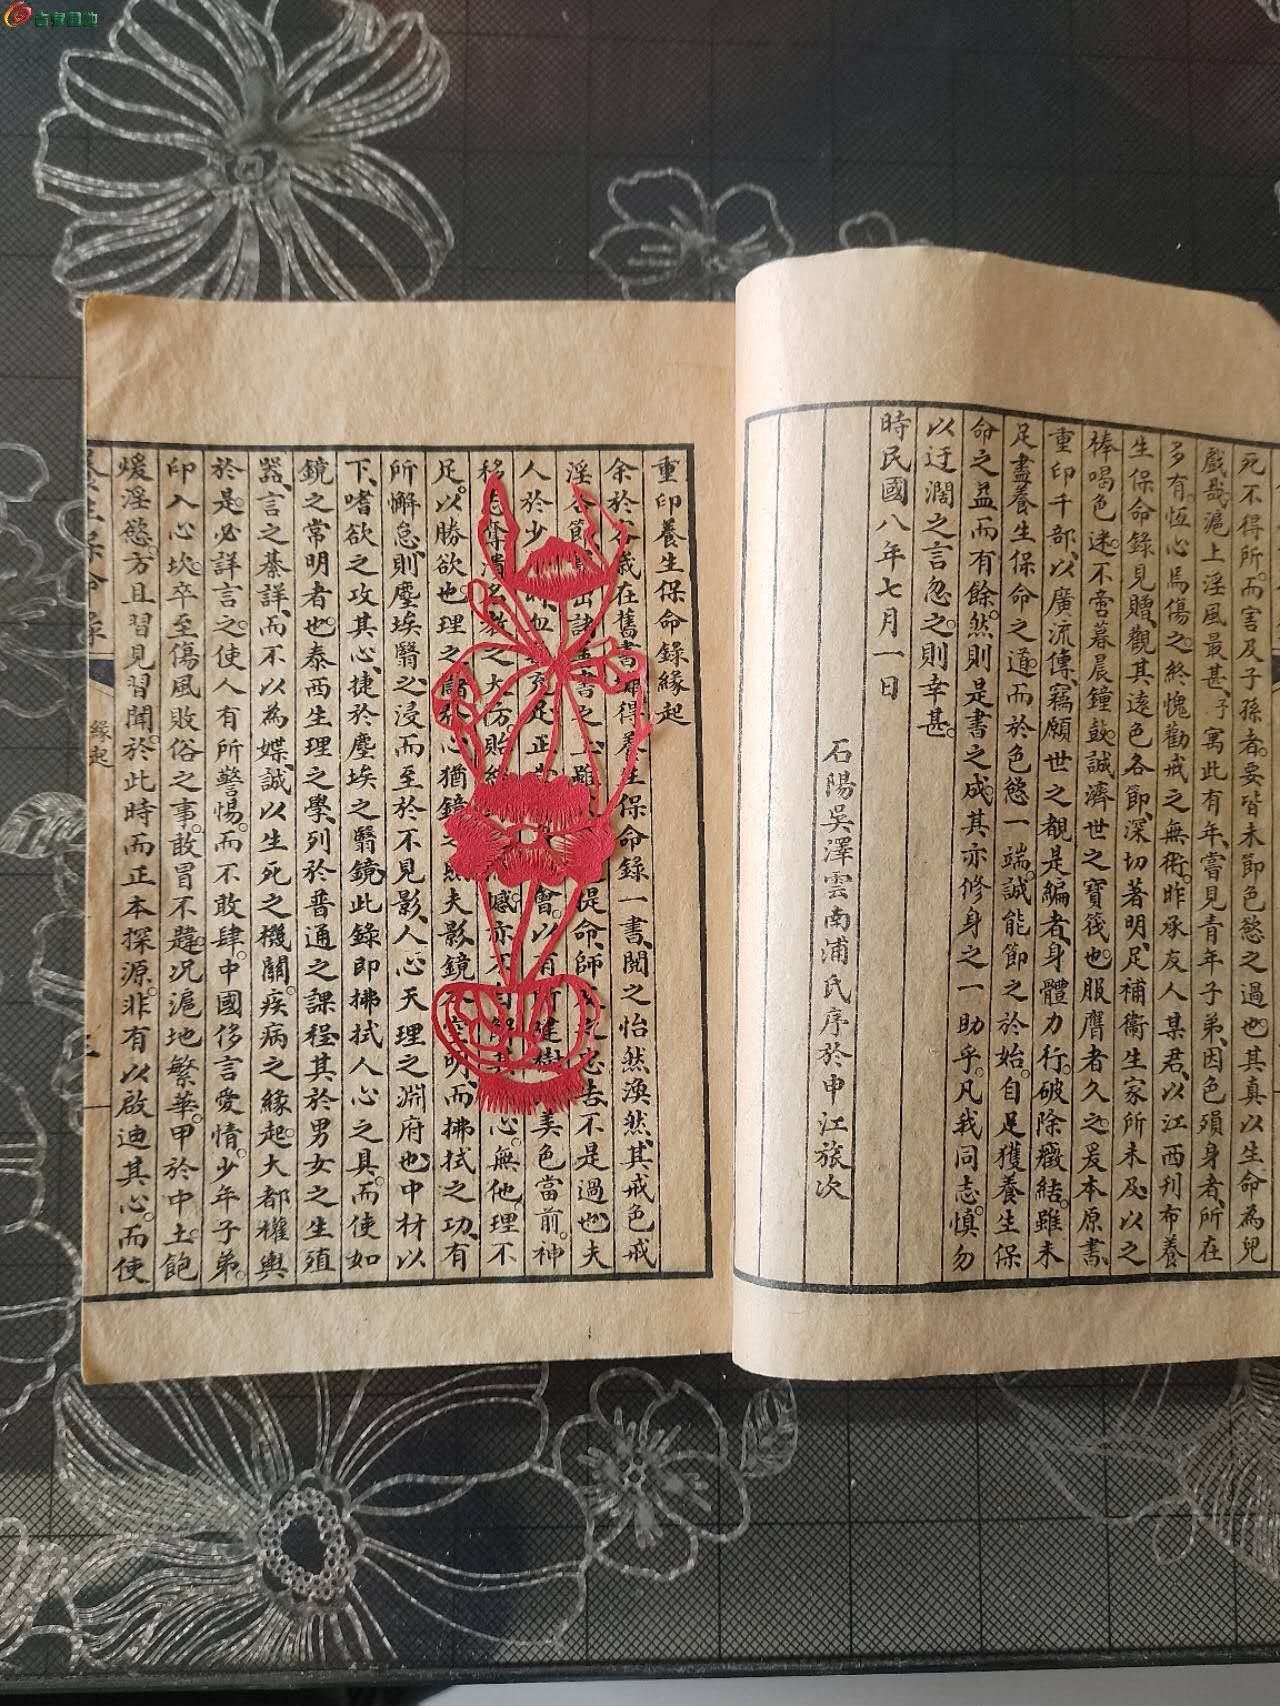 死不得所。而害及子孫者。要皆未節色慾之過也。其真以生命為兒
戲哉。滬上淫風最甚。予寓此有年。嘗見青年子弟。因色殞身者。所在
多有。恆心焉傷之。終愧勸戒之無術。昨承友人某君。以江西刊布養
生保命錄見贈。觀其遠色各節。深切著明。足補衞生家所未及。以之
棒喝色迷。不啻暮晨鐘鼓。誠濟世之寶筏也。服膺者久之。爰本原書。
重印千部。以廣流傳。竊願世之覩是編者。身體力行。破除癥結。雖未
足盡養生保命之道。而於色慾一端。誠能節之於始。自足獲養生保
命之益而有餘。然則是書之成。其亦修身之一助乎。凡我同志。慎勿
以迂濶之言忽之。則幸甚。
時民國八年七月一日
石陽吳澤雲南浦氏序於申江旅次
重印養生保命錄緣起
余於 歲在舊書 得養生保命錄一書。閱之怡然渙然。其戒色戒
淫 節 出諸 書之上。雖 提命。師 志去不是過也。夫
人於少 血 充足。正 會。以有 建樹 美色當前。神
移 奪。潰名教之大防。貽 憾。亦不自 心無他。理不
足。以勝欲也。理之諸於心。猶鏡之照夫影。鏡 空明。而拂拭之功。有
所懈怠。則塵埃翳之。浸而至於不見影。人心天理之淵府也。中材以
下。嗜欲之攻其心。捷於塵埃之翳鏡。此錄即拂拭人心之具。而使如
鏡之常明者也。泰西生理之學。列於普通之課程。其於男女之生殖
器。言之綦詳。而不以為媟。誠以生死之機關。疾病之緣起。大都權輿
於是。必詳言之。使人有所警惕。而不敢肆。中國侈言愛情。少年子弟。
印入心坎。卒至傷風敗俗之事。敢冒不韙。况滬地繁華。甲於中土。飽
煖淫慾。方且習見習聞。於此時而正本探源。非有以啟迪其心。而使
緣起